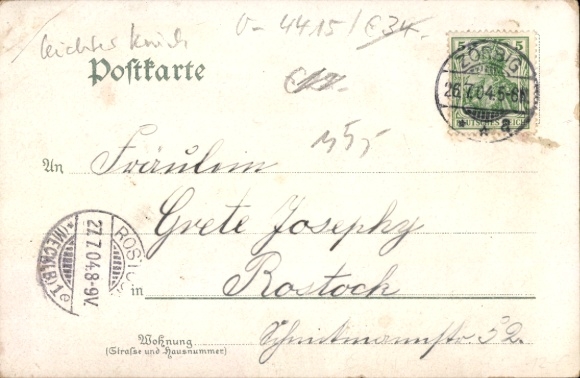 leichter Knick
V- 4415 / €34.
Postkarte
5 5
ZÖRBIG
26.7.04.5-6N.
* * a
DEUTSCHES REICH
An Fräulein
Grete Josephy
ROSTOCK
27.7.04.8-9V.
* (MECKLB) 1e
in Rostock
Wohnung
(Straße und Hausnummer)
32.